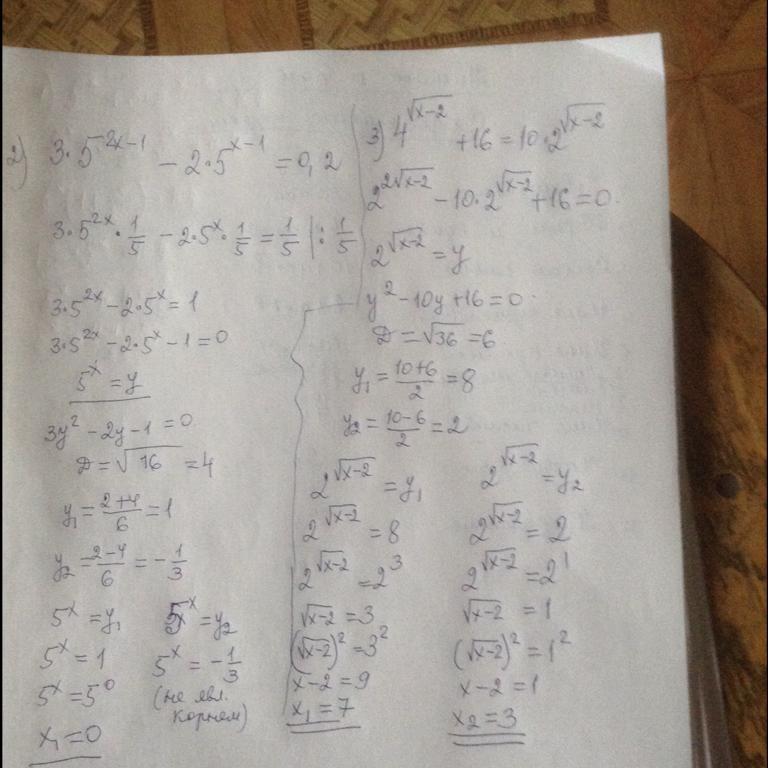 2) 3·5^(2x-1) - 2·5^(x-1) = 0,2
3·5^(2x)·1/5 - 2·5^x·1/5 = 1/5 |: 1/5
3·5^(2x) - 2·5^x = 1
3·5^(2x) - 2·5^x - 1 = 0
5^x = y
3y² - 2y - 1 = 0
D = √16 = 4
y₁ = (2+4)/6 = 1
y₂ = (2-4)/6 = -1/3
5^x = y₁
5^x = 1
5^x = 5^0
x₁ = 0
5^x = y₂
5^x = -1/3
(не явл.
корнем)
3) 4^(√(x-2)) + 16 = 10·2^(√(x-2))
2^(2√(x-2)) - 10·2^(√(x-2)) + 16 = 0.
2^(√(x-2)) = y
y² - 10y + 16 = 0.
D = √36 = 6
y₁ = (10+6)/2 = 8
y₂ = (10-6)/2 = 2
2^(√(x-2)) = y₁
2^(√(x-2)) = 8
2^(√(x-2)) = 2³
√(x-2) = 3
(√(x-2))² = 3²
x-2 = 9
x₁ = 7
2^(√(x-2)) = y₂
2^(√(x-2)) = 2
2^(√(x-2)) = 2¹
√(x-2) = 1
(√(x-2))² = 1²
x-2 = 1
x₂ = 3